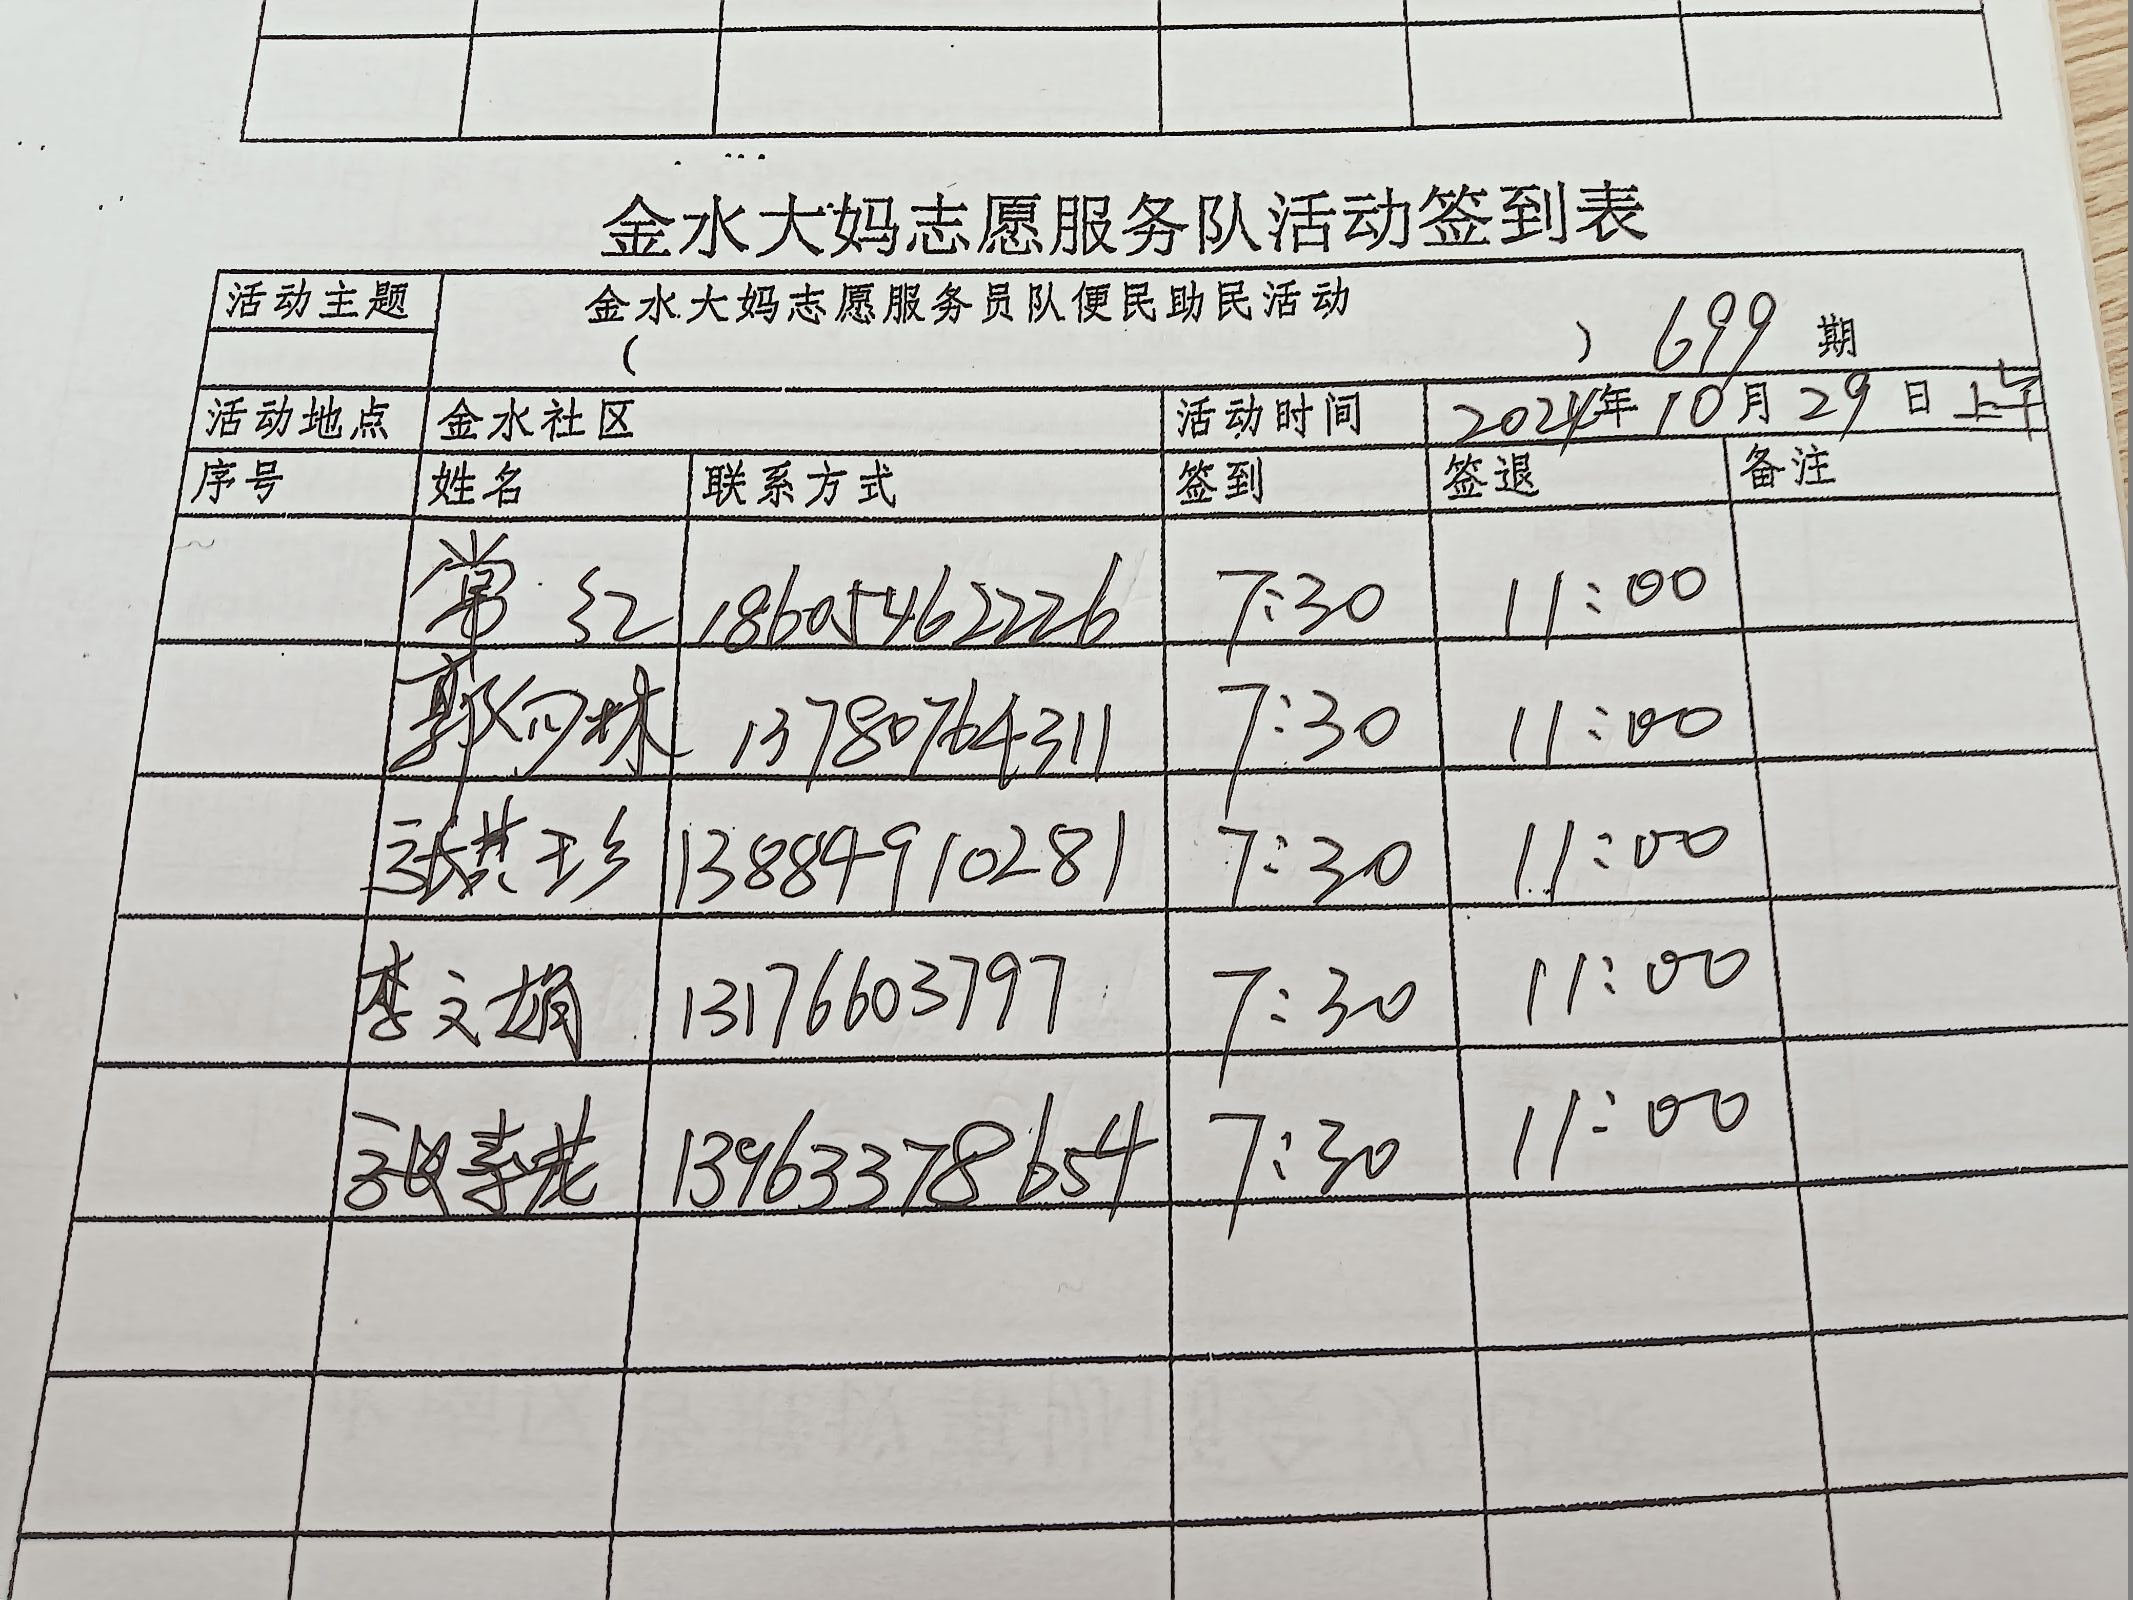 金水大妈志愿服务队活动签到表
活动主题 金水大妈志愿服务员队便民助民活动
( ) 699 期
活动地点 金水社区 活动时间 2024年10月29日上午
序号 姓名 联系方式 签到 签退 备注
常红 18605462226 7:30 11:00
郭向林 13780764311 7:30 11:00
张芸珍 13884910281 7:30 11:00
李文娟 13176603797 7:30 11:00
13963378654 7:30 11:00